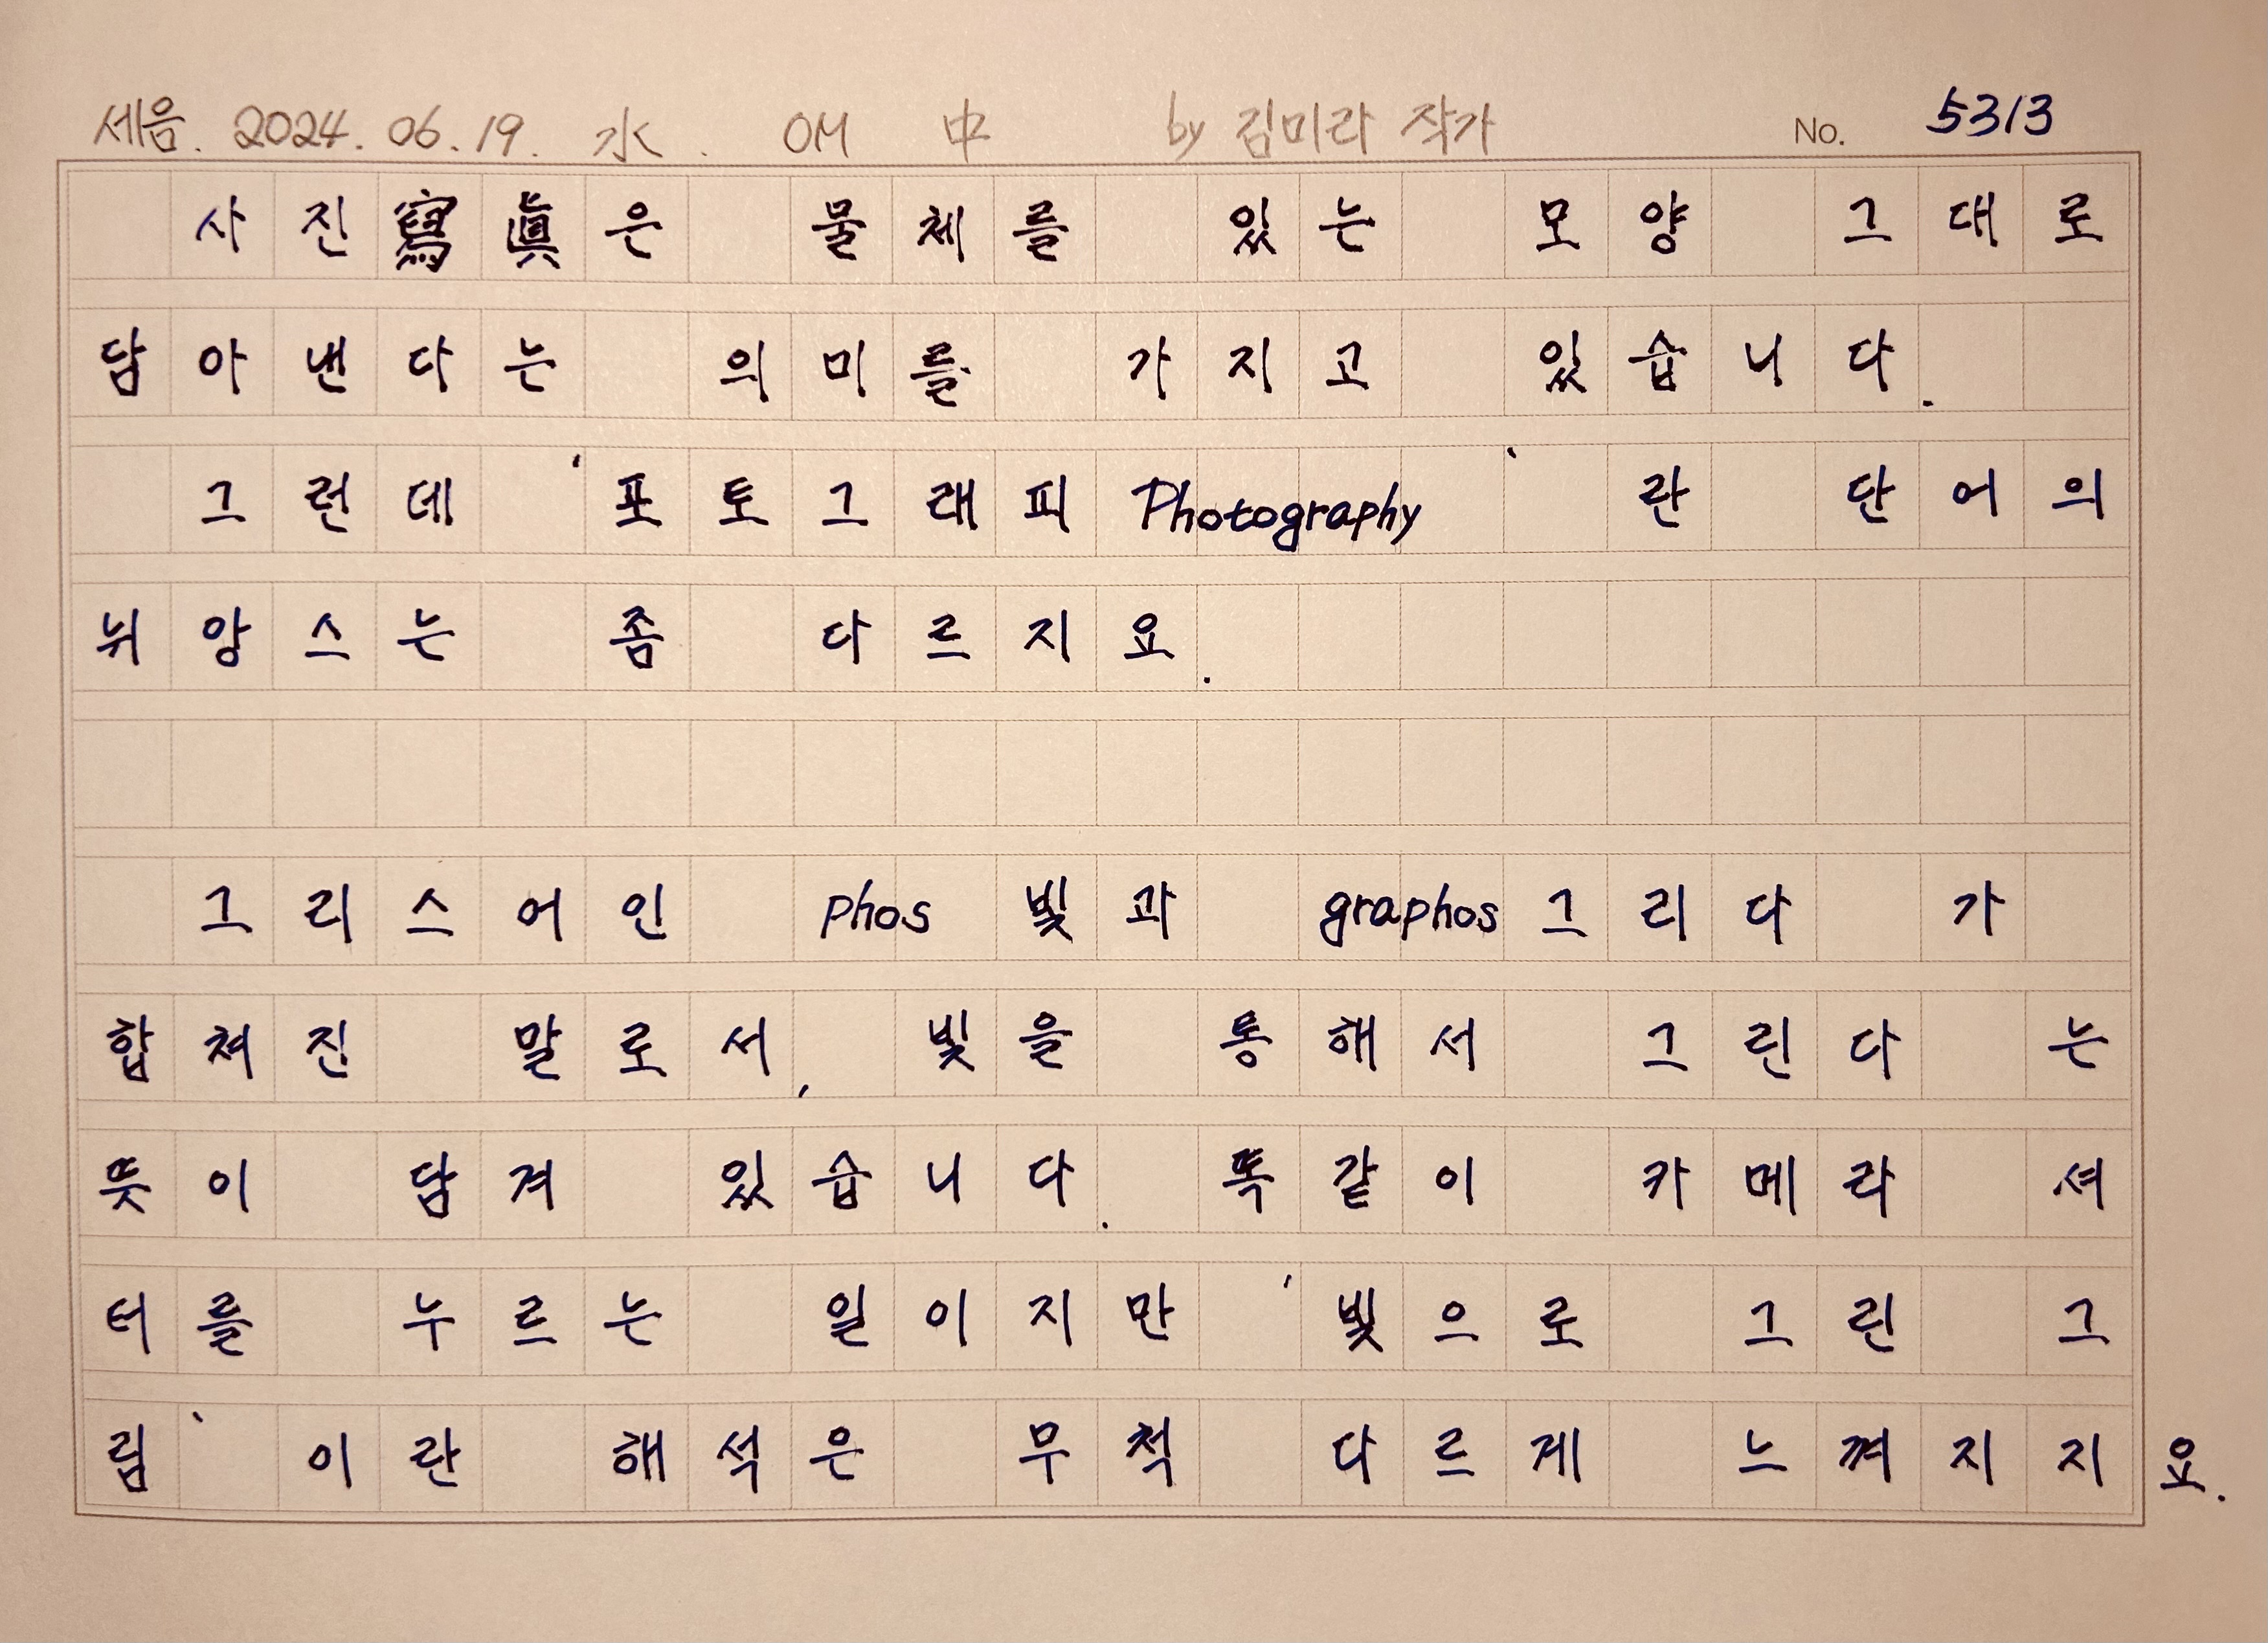 세음. 2024. 06. 19. 水. OM 中 by 김미라 작가 No. 5313
사진寫眞은 물체를 있는 모양 그대로
담아낸다는 의미를 가지고 있습니다.
그런데 '포토그래피 Photography'란 단어의
뉘앙스는 좀 다르지요.
그리스어인 phos 빛과 graphos 그리다 가
합쳐진 말로서, 빛을 통해서 그린다 는
뜻이 담겨 있습니다. 똑같이 카메라 셔
터를 누르는 일이지만 '빛으로 그린 그
림' 이란 해석은 무척 다르게 느껴지지요.